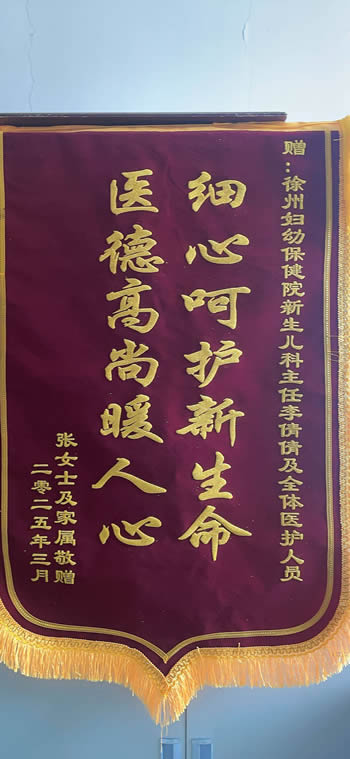 赠：徐州妇幼保健院新生儿科主任李倩倩及全体医护人员
细心呵护新生命
医德高尚暖人心
张女士及家属敬赠
二零二五年三月